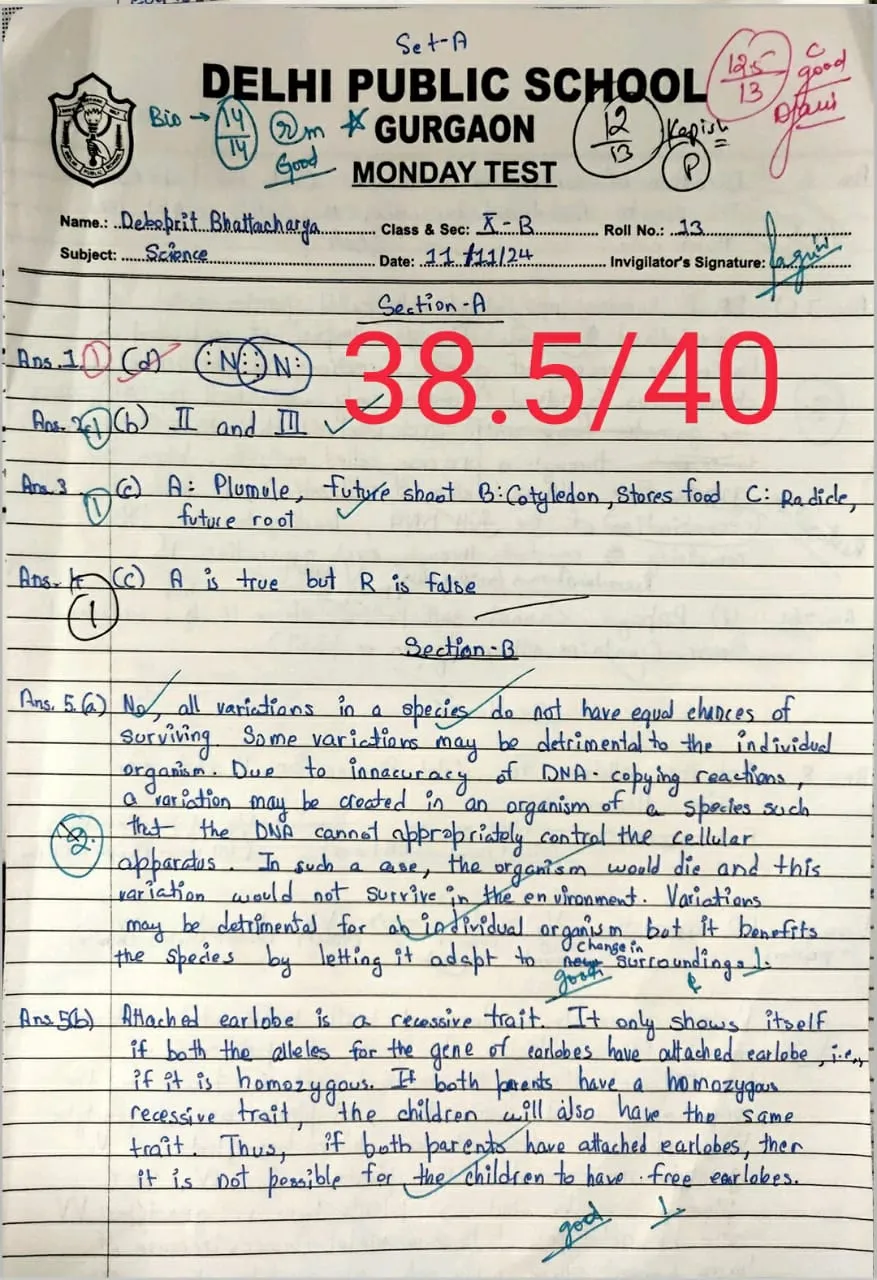 Set-A
DELHI PUBLIC SCHOOL
GURGAON
MONDAY TEST
Bio → 14/14
Good
12/13
Kapish
P
12.5/13
good
Name.: Deboprit Bhattacharya Class & Sec: X-B Roll No.: 13
Subject: Science Date: 11/11/24 Invigilator's Signature:
Section-A
38.5/40
Ans.1. 1 (d) :N::N:
Ans. 2. 1 (b) II and III
Ans.3 1 (c) A: Plumule, future shoot B: Cotyledon, Stores food C: Radicle,
future root
Ans. 4 1 (c) A is true but R is false
Section-B
Ans. 5.(a) No, all variations in a species do not have equal chances of
surviving. Some variations may be detrimental to the individual
organism. Due to innacuracy of DNA-copying reactions,
a variation may be created in an organism of a species such
that the DNA cannot appropriately control the cellular
2
apparatus. In such a case, the organism would die and this
variation would not survive in the environment. Variations
may be detrimental for an individual organism but it benefits
the species by letting it adapt to change in surroundings.
good 1
Ans.5(b) Attached earlobe is a recessive trait. It only shows itself
if both the alleles for the gene of earlobes have attached earlobe, i.e.,
if it is homozygous. If both parents have a homozygous
recessive trait, the children will also have the same
trait. Thus, if both parents have attached earlobes, then
it is not possible for the children to have free earlobes.
good 1